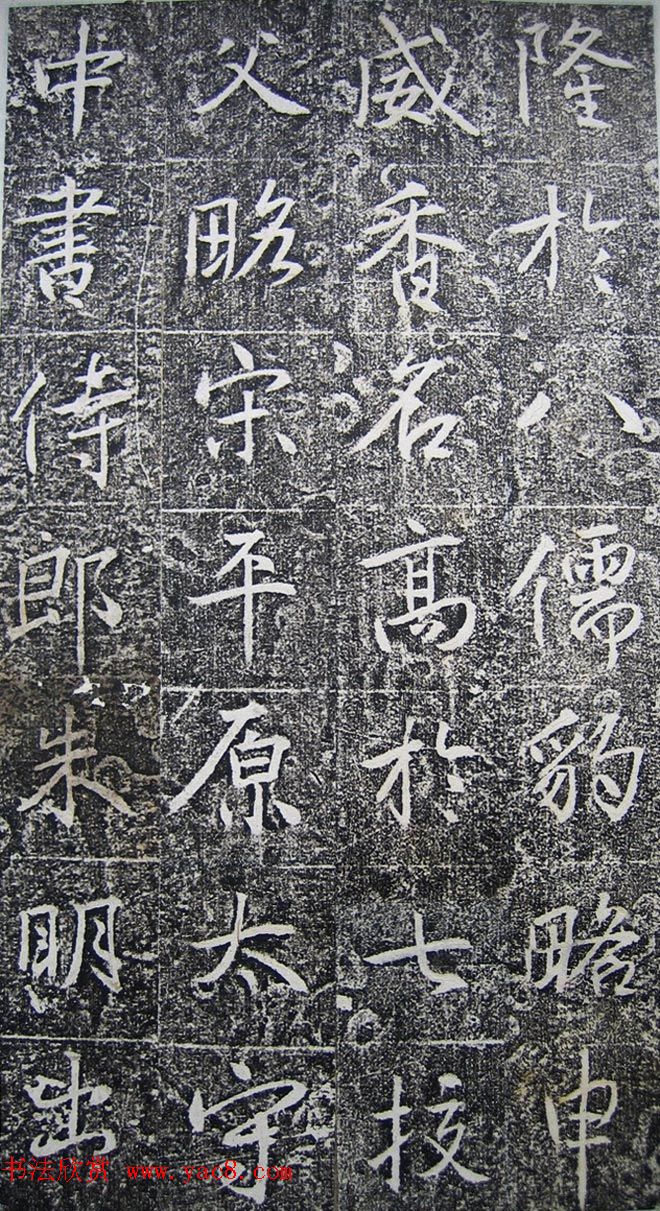 隆於八儒豹略申
威香名高於七挍
父略宋平原太守
中書侍郎朱明出
书法欣赏 www.yac8.com